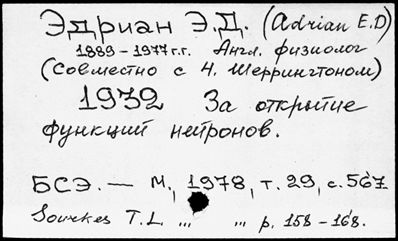 Эдриан Э.Д. (Adrian E.D)
1889-1977 г.г. Англ. физиолог
(Совместно с Н. Шеррингтоном)
1932 За открытие
функций нейронов.
БСЭ. — М., 1978, т. 29, с. 567
Sourkes T.L ,,, ,,, p. 158-168.